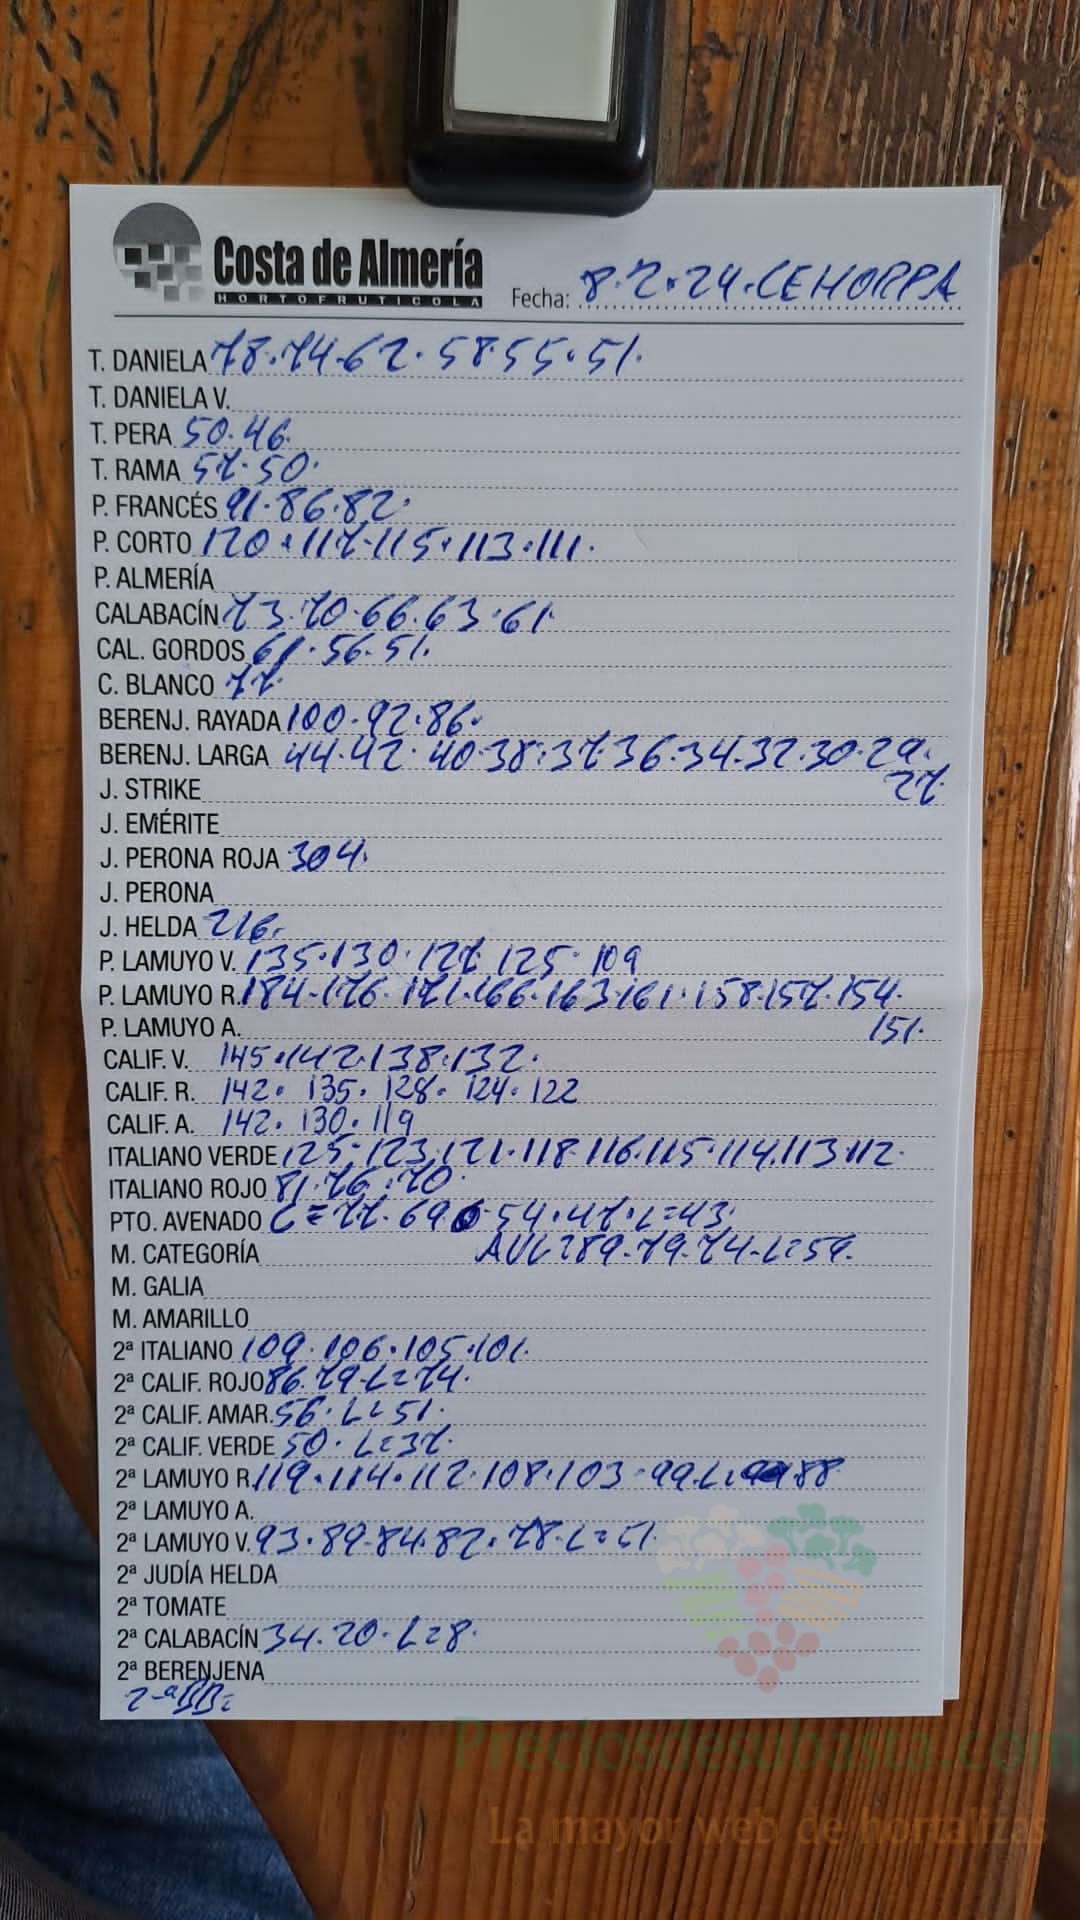 Costa de Almería
HORTOFRUTICOLA
Fecha: 8.2.24.CEHORPA
T. DANIELA 78.74-62.58.55.51.
T. DANIELA V.
T. PERA 50.46.
T. RAMA 57.50.
P. FRANCÉS 91.86.82.
P. CORTO 120.117-115.113.111.
P. ALMERÍA
CALABACÍN 73.70.66.63.61.
CAL. GORDOS 61.56.51.
C. BLANCO 77.
BERENJ. RAYADA 100.92.86.
BERENJ. LARGA 44.42.40.38.37.36.34.32.30.29.
27.
J. STRIKE
J. EMÉRITE
J. PERONA ROJA 304.
J. PERONA
J. HELDA 216.
P. LAMUYO V. 135.130.127.125.109
P. LAMUYO R. 184-176.171.166.163.161.158.157.154.
151.
P. LAMUYO A.
CALIF. V. 145.142.138.132.
CALIF. R. 142. 135. 128. 124. 122
CALIF. A. 142. 130. 119
ITALIANO VERDE 125.123.121.118.116.115.114.113.112.
ITALIANO ROJO 81.76.70.
PTO. AVENADO C=77.69. 54.47.L=43.
M. CATEGORÍA
M. GALIA
M. AMARILLO
2ª ITALIANO 109.106.105.101.
2ª CALIF. ROJO 86.79-L=74.
2ª CALIF. AMAR. 56. L=51.
2ª CALIF. VERDE 50. L=37.
2ª LAMUYO R. 119.114.112.108.103-99.L= 88
2ª LAMUYO A.
2ª LAMUYO V. 93.89-84.82.78-L=51.
2ª JUDÍA HELDA
2ª TOMATE
2ª CALABACÍN 34.20.L=8.
2ª BERENJENA
Preciosdesubasta.com
La mayor web de hortalizas